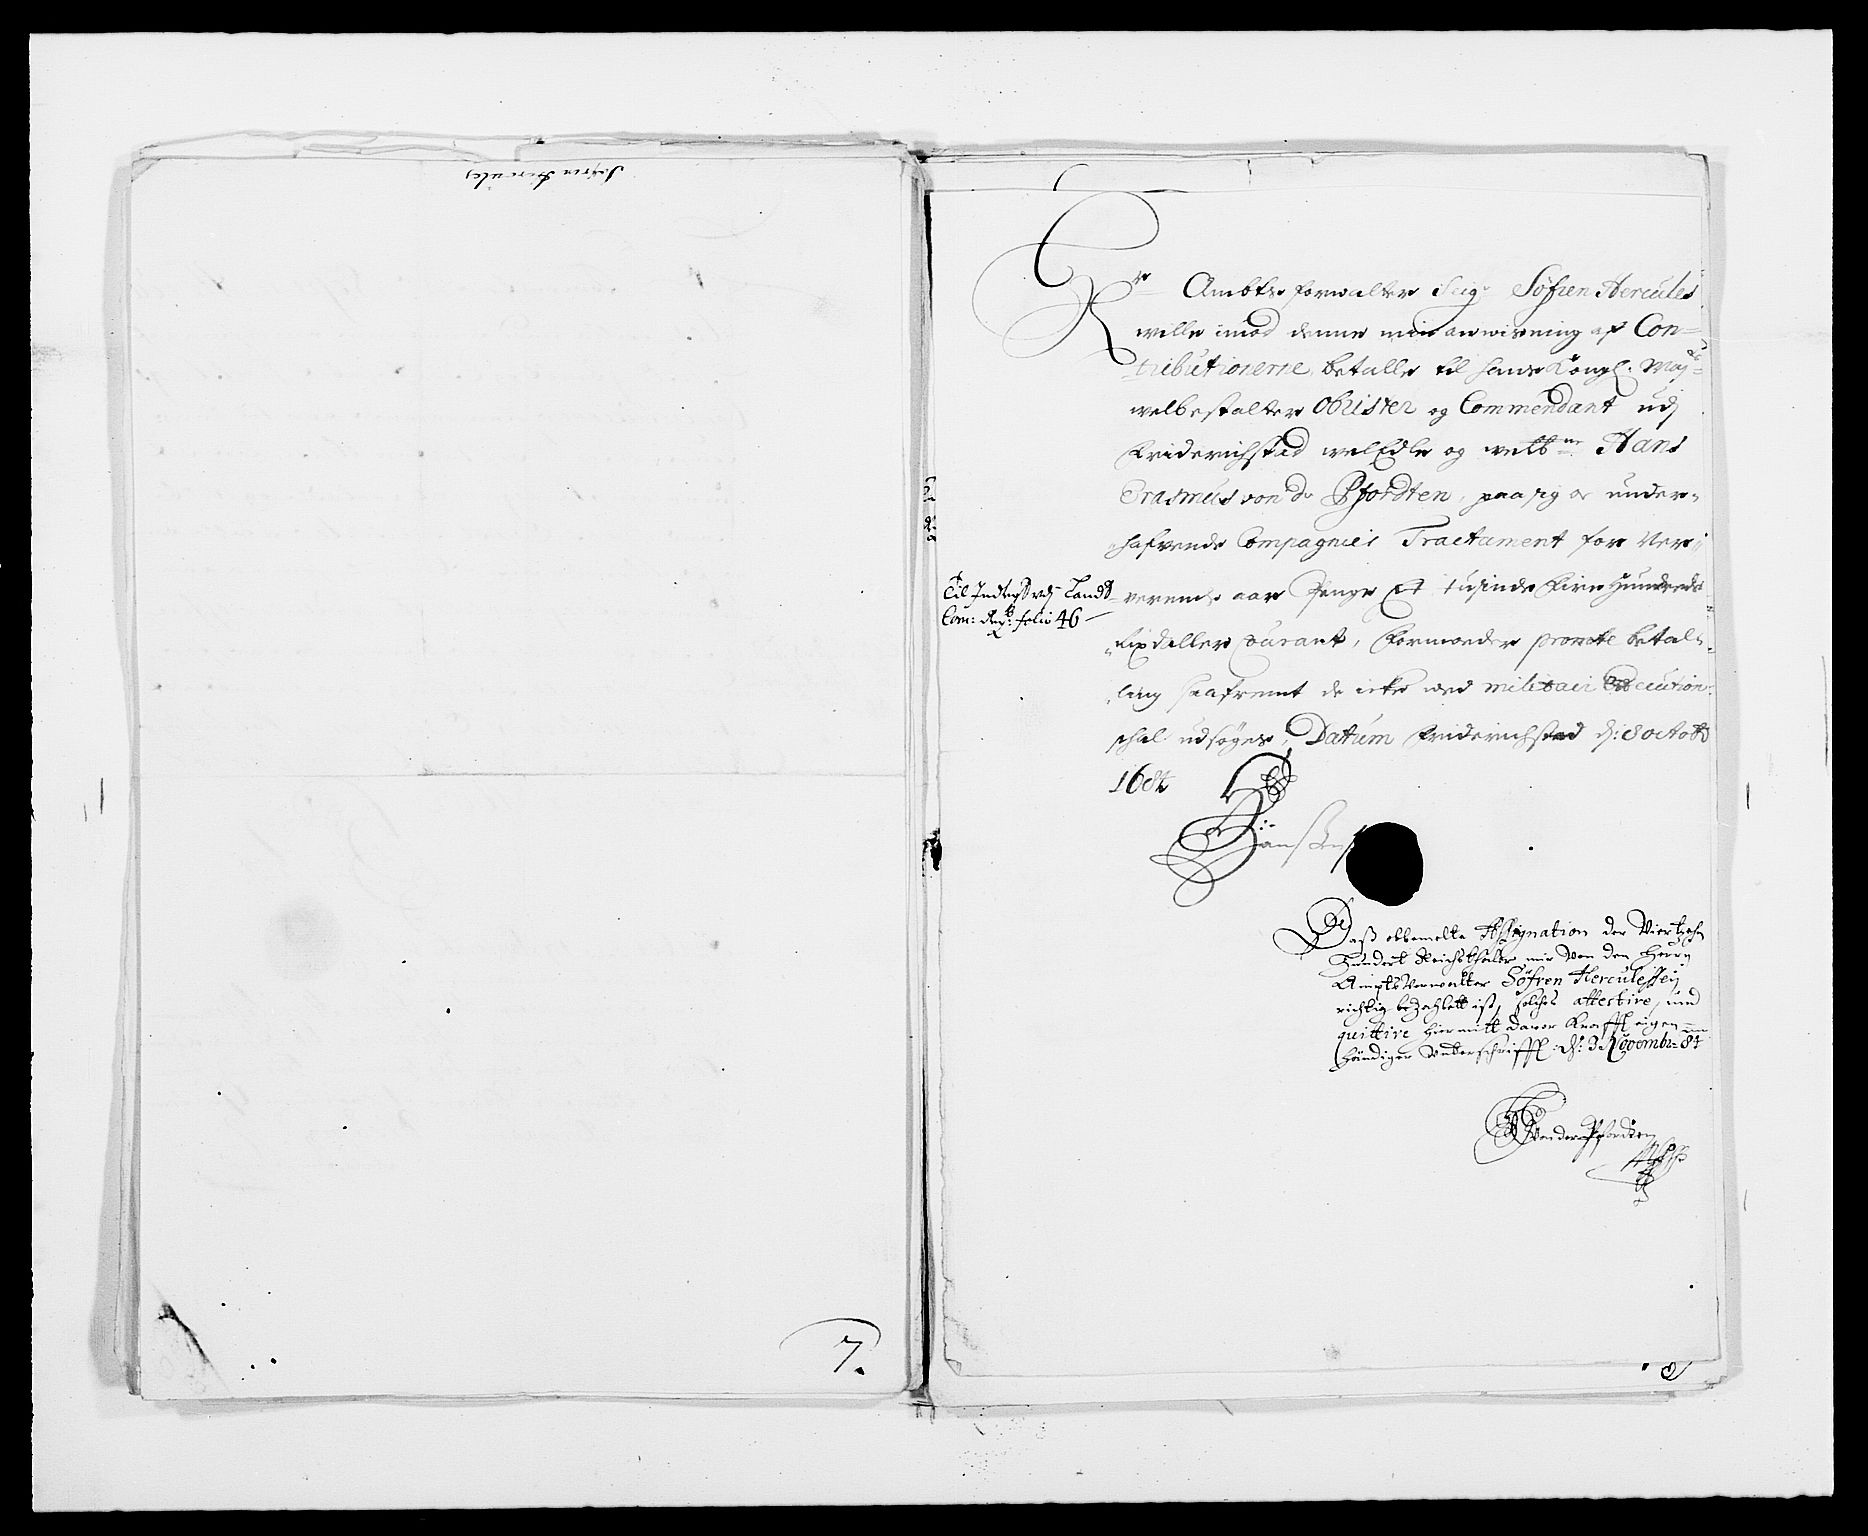 Søfren Hercules
7.
Hr Ambtsforwalter Seigr Søfren Hercules
wille imod denne min anwisning af Con=
=tributionerne, betalle til hans Kongl. Mayts
welbestalter Obrister og Commendant udj
Friderichstad welEdle og welbne Hans
Erasmus von dr Pfordten, paa sig oc under=
hafvende Compagnies Tractament for Ver=
=verende aar Penge Et tusinde Fire Hundrede
Rixdaller Courant, formoder promte betal=
ling saafremt de icke wed militair Execution
schal udsøges, Datum Friderichstad dj: 8 octob
1684
Til Indtegt udj Landt
Com: Reg: folio 46
Daß obbemelte Assignation der Viertzehn
Hundert Reichsthaler mir von den Herrn
Ampts Verwalter Söfren Herculessen
richtig bezahlett ist, solches attestire, und
quittire hiermitt davor Krafft eigen
händiger Unterschrifft. d: 3 Novembr: 84
von der Pfordten